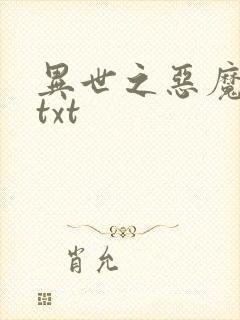 異世之惡魔
txt
肖允